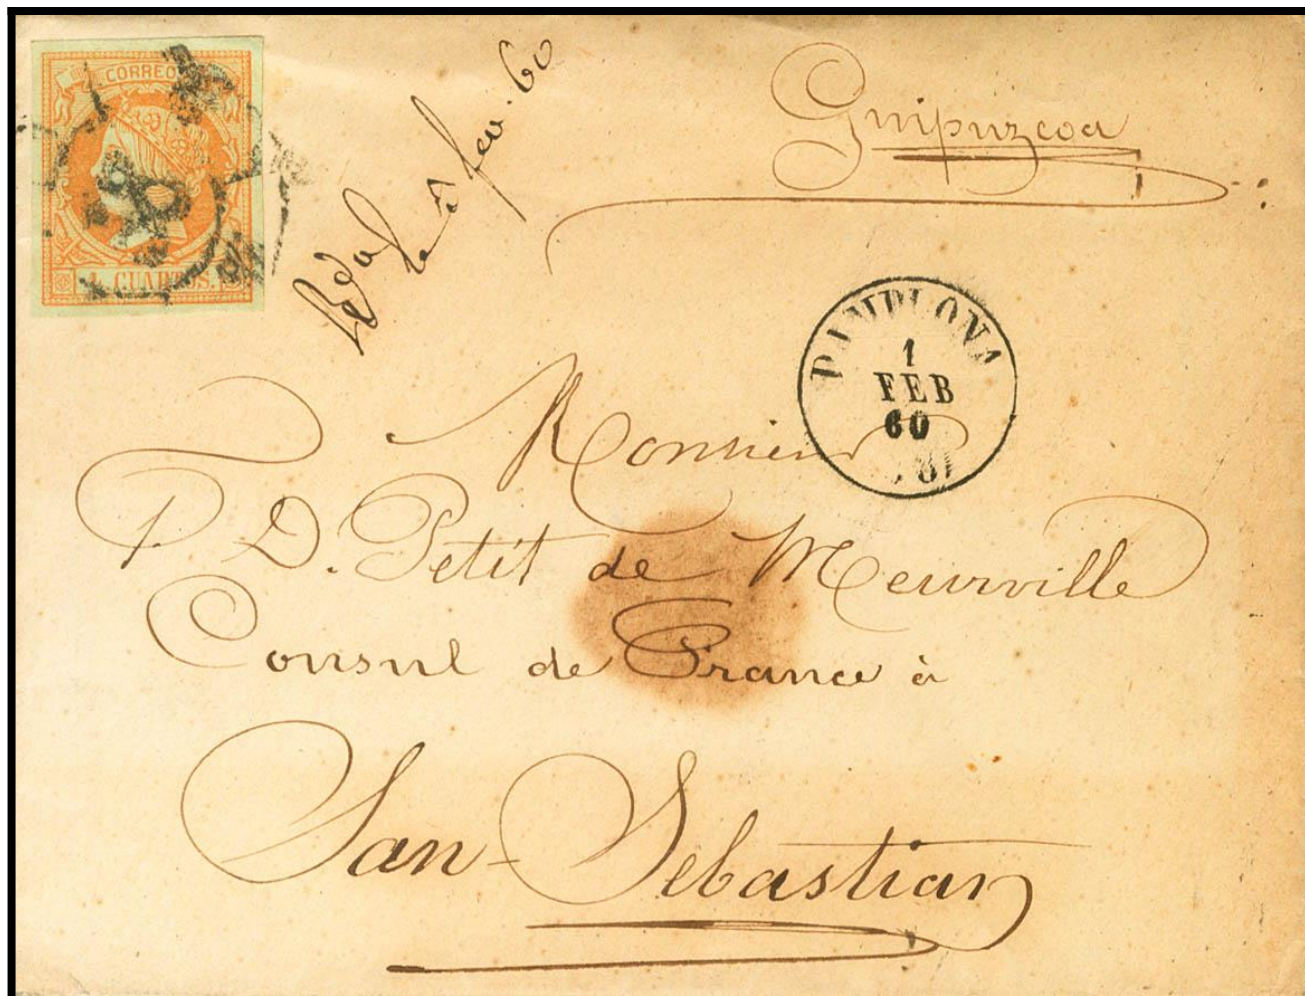 CORREOS
4 CUARTOS.
le 5 fev. 60
Guipuzcoa
PAMPLONA
1
FEB
60
Monsieur
D. Petit de Meurville
Consul de France à
San-Sebastian